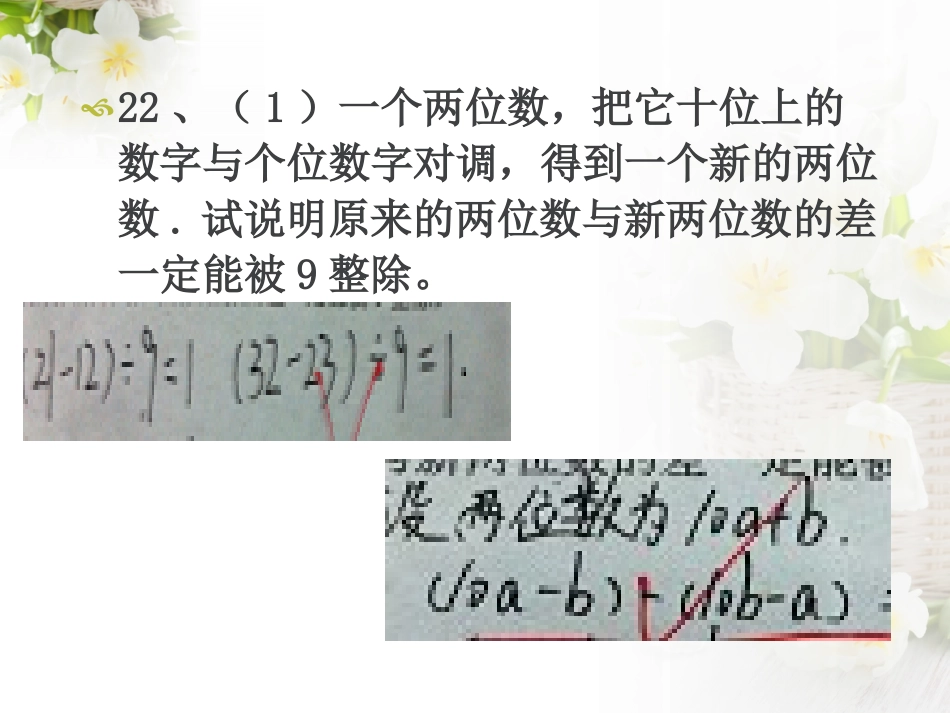 22 、（ 1 ）一个两位数，把它十位上的
数字与个位数字对调，得到一个新的两位
数 . 试说明原来的两位数与新两位数的差
一定能被 9 整除。
(21-12)÷9=1 (32-23)÷9=1.
与新两位数的差一定能被
设两位数为10a+b.
(10a-b)-(10b-a)=